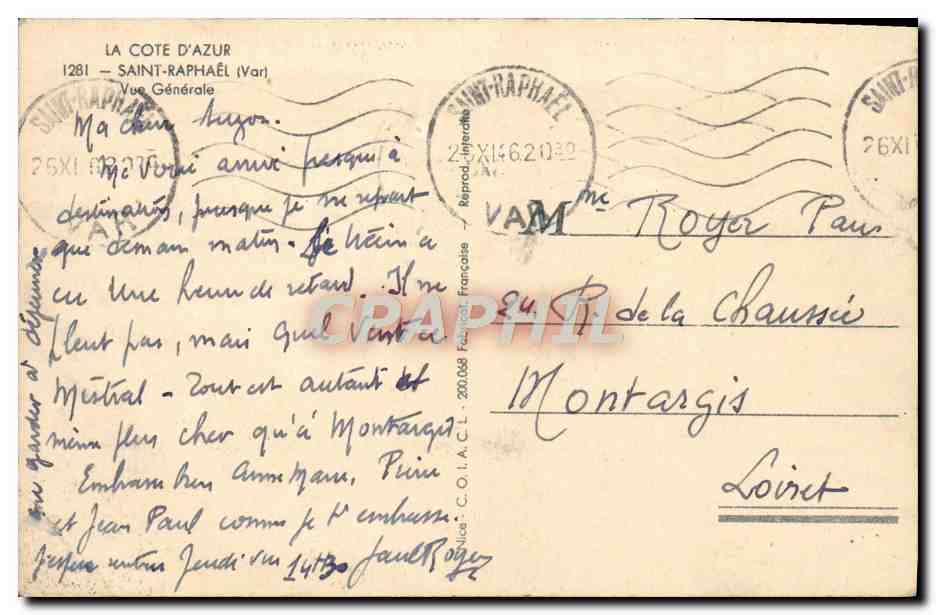 LA COTE D'AZUR
1281 — SAINT-RAPHAËL (Var)
Vue Générale
SAINT-RAPHAËL
VAR
SAINT-RAPHAËL
VAR
26XI
Ma chère Suzon.
Me voici arrivé jusqu'à
destination, puisque je ne repart
que demain matin. Le train a
eu une heure de retard. Il ne
pleut pas, mais quel vent ce
Mistral - Tout est autant et
même plus cher qu'à Montargis
Embrasse bien Anne Marie, Pierre
et Jean Paul comme je t'embrasse.
J'espère rentrer Jeudi vers 14h30 Paul Royer
me garder à déjeuner
Nice - C.O.I.A.C.L. - 200.068 Fabricat. Française — Reprod. Interdite
Mme Royer Paul
24. R. de la Chaussée
Montargis
Loiret
CPAPHIL